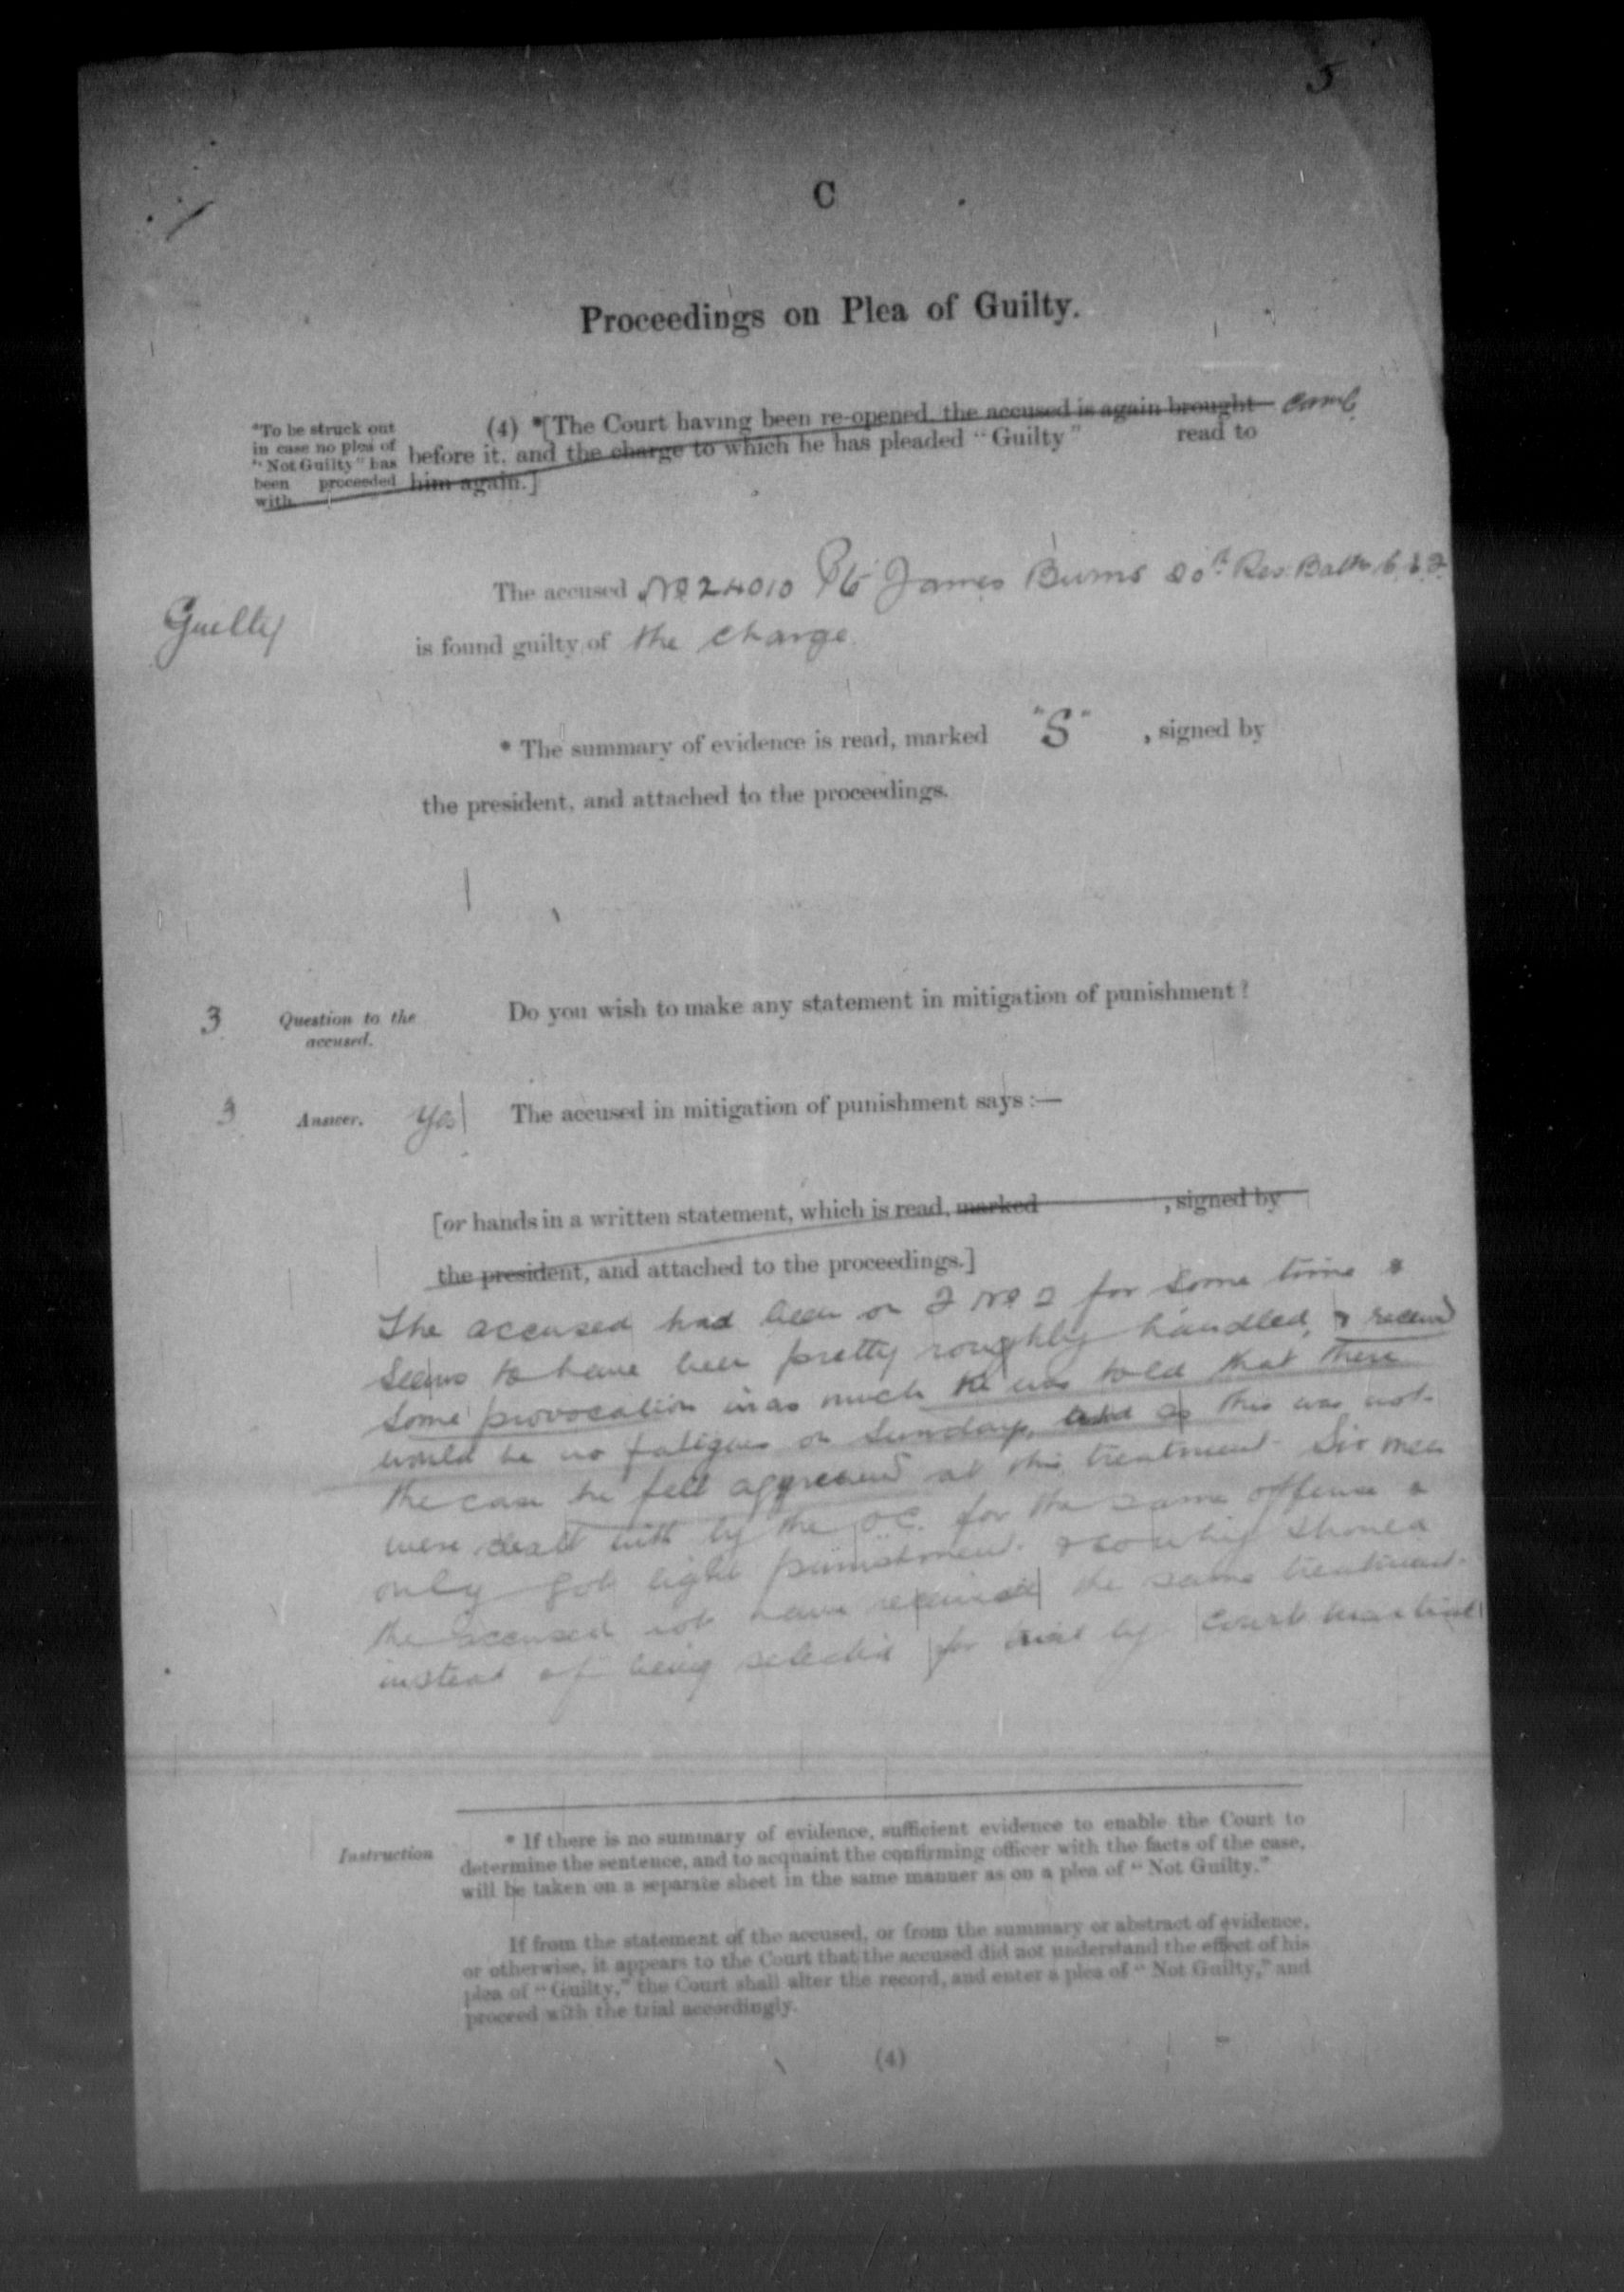 5
C
Proceedings on Plea of Guilty.
*To be struck out
in case no plea of
"Not Guilty" has
been proceeded
with.
(4) *[The Court having been re-opened, the accused is again brought
before it, and the charge to which he has pleaded "Guilty" read to
him again.]
Guilty
The accused No 24010 Pte James Burns 20th Res. Battn C.E.F.
is found guilty of the charge.
* The summary of evidence is read, marked "S" , signed by
the president, and attached to the proceedings.
3 Question to the
accused.
Do you wish to make any statement in mitigation of punishment?
3 Answer. Yes The accused in mitigation of punishment says :—
[or hands in a written statement, which is read, marked , signed by
the president, and attached to the proceedings.]
The accused had been on F No 2 for some time &
seems to have been pretty roughly handled, &
some provocation in as much he was told that there
would be no fatigues on Sunday, as this was not
the case he felt aggrieved at this treatment. Six men
were dealt with by the O.C. for the same offense &
only got light punishment. why should
the accused not have received the same treatment
instead of being selected for trial by Court martial
Instruction
* If there is no summary of evidence, sufficient evidence to enable the Court to
determine the sentence, and to acquaint the confirming officer with the facts of the case,
will be taken on a separate sheet in the same manner as on a plea of "Not Guilty."
If from the statement of the accused, or from the summary or abstract of evidence,
or otherwise, it appears to the Court that the accused did not understand the effect of his
plea of "Guilty," the Court shall alter the record, and enter a plea of "Not Guilty," and
proceed with the trial accordingly.
(4)